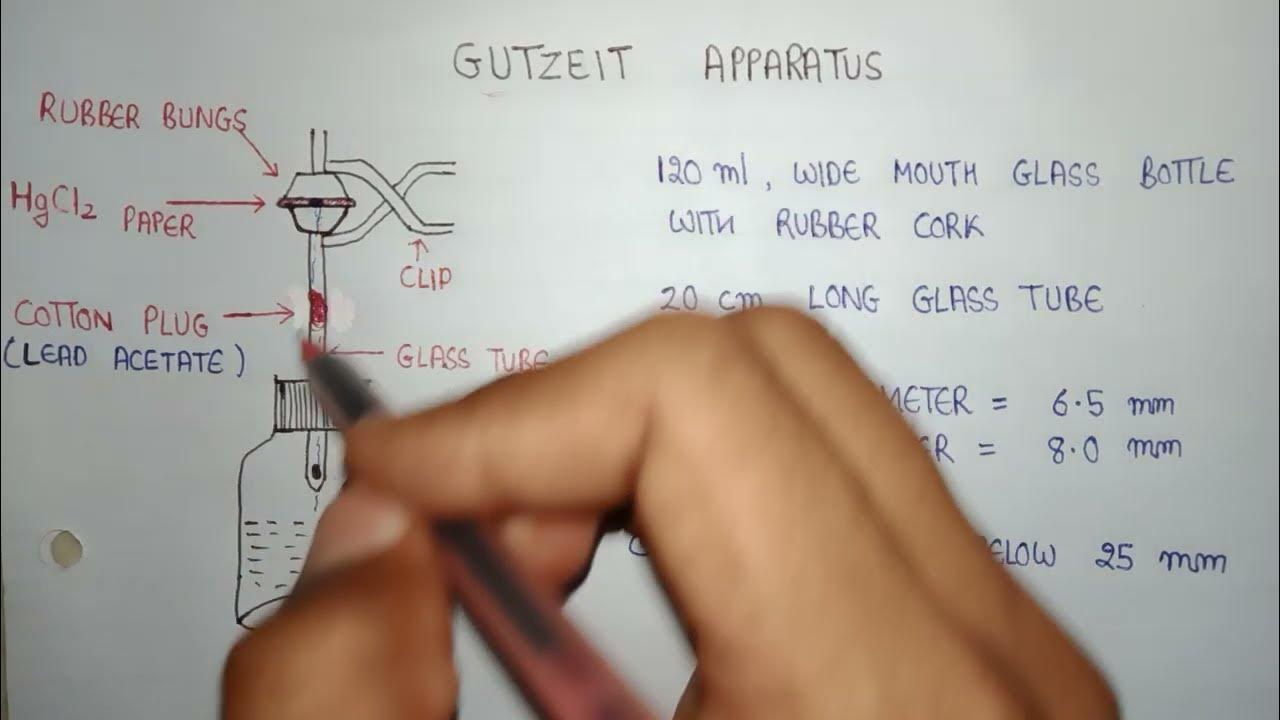 GUTZEIT APPARATUS
RUBBER BUNGS
HgCl₂ PAPER
CLIP
COTTON PLUG
(LEAD ACETATE)
GLASS TUBE
120 ml, WIDE MOUTH GLASS BOTTLE
WITH RUBBER CORK
20 cm LONG GLASS TUBE
= 6.5 mm
= 8.0 mm
25 mm